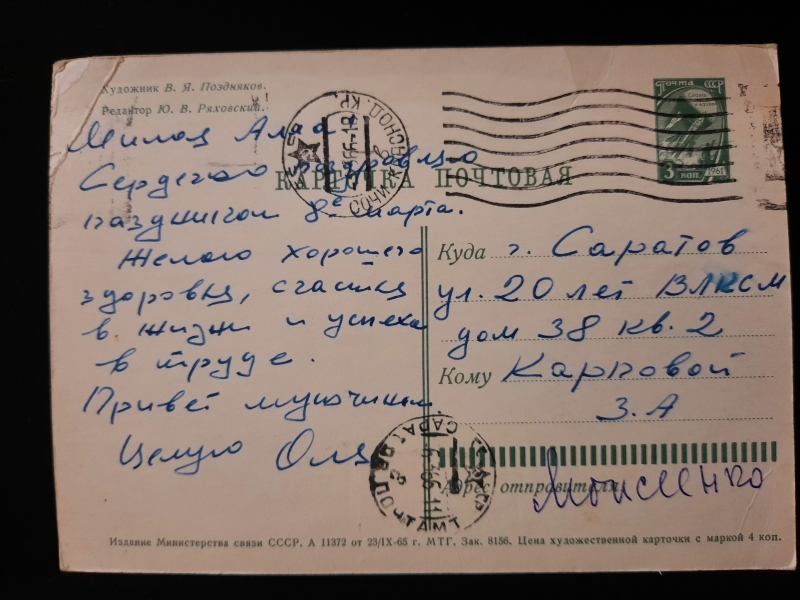 Художник В. Я. Поздняков.
Редактор Ю. В. Ряховский.
ПОЧТА СССР
3 КОП. 1961
КАРТОЧКА ПОЧТОВАЯ
Милая Алла!
Сердечно поздравляю
праздником 8е марта.
Желаю хорошего
здоровья, счастья
в жизни и успеха
в труде.
Привет мужчинам.
Целую Оля
Куда г. Саратов
ул. 20 лет ВЛКСМ
дом 38 кв. 2
Кому Карповой
З. А
САРАТОВ
ПОЧТАМТ
Адрес отправителя:
Моисенко
Издание Министерства связи СССР. А 11372 от 23/IX-65 г. МТГ. Зак. 8156. Цена художественной карточки с маркой 4 коп.